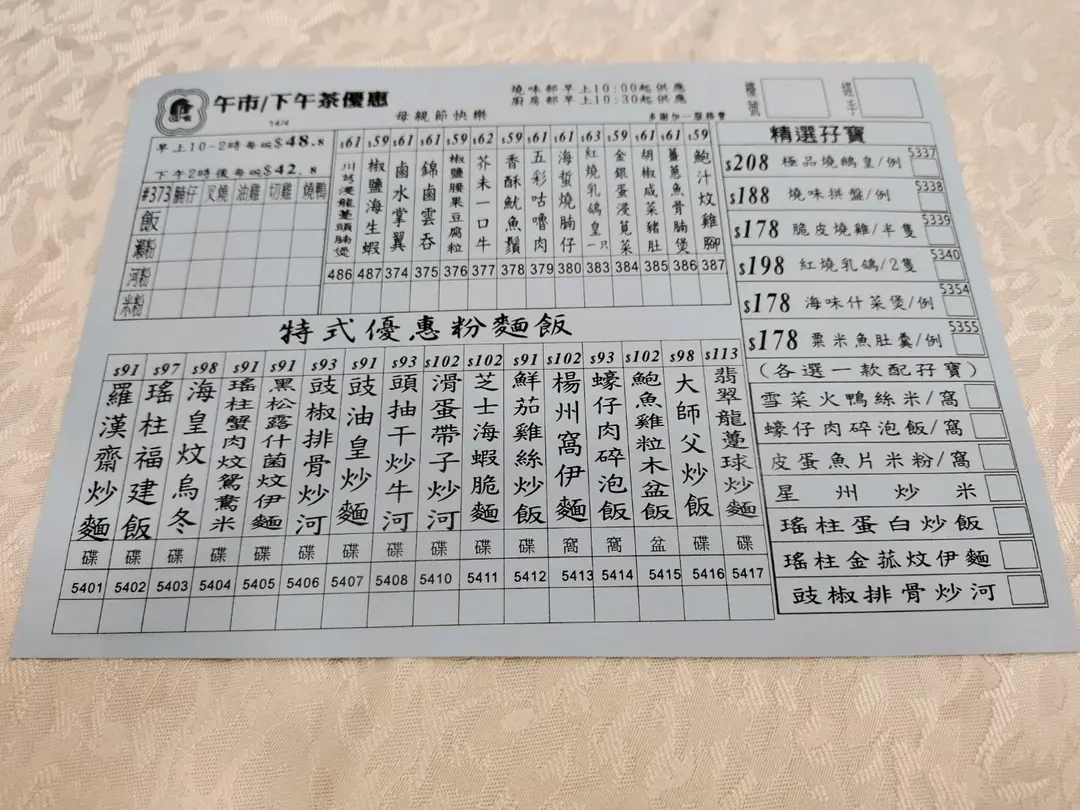 午市/下午茶優惠
14/4
母親節快樂
燒味部早上10:00起供應
廚房部早上10:30起供應
多謝加一服務費
檯號
經手
早上10-2時每碗$48.8
下午2時後每碗$42.8
#373 腩仔 叉燒 油雞 切雞 燒鴨
飯
瀨粉
河粉
米粉
$61 $59 $61 $61 $59 $62 $59 $61 $61 $63 $59 $61 $61 $59
川芎浸龍躉頭腩煲
椒鹽海生蝦
鹵水掌翼
錦鹵雲吞
椒鹽腰果豆腐粒
芥末一口牛
香酥魷魚鬚
五彩咕嚕肉
海蜇燒腩仔
紅燒乳鴿皇一只
金銀蛋浸莧菜
胡椒咸菜豬肚
薑蔥魚骨腩煲
鮑汁炆雞腳
486 487 374 375 376 377 378 379 380 383 384 385 386 387
特式優惠粉麵飯
$91 $97 $98 $91 $91 $93 $91 $93 $102 $102 $91 $102 $93 $102 $98 $113
羅漢齋炒麵
瑤柱福建飯
海皇炆烏冬
瑤柱蟹肉炆鴛鴦米
黑松露什菌炆伊麵
豉椒排骨炒河
豉油皇炒麵
頭抽干炒牛河
滑蛋帶子炒河
芝士海蝦脆麵
鮮茄雞絲炒飯
楊州窩伊麵
蠔仔肉碎泡飯
鮑魚雞粒木盆飯
大師父炒飯
翡翠龍躉球炒麵
碟 碟 碟 碟 碟 碟 碟 碟 碟 碟 碟 窩 窩 盆 碟 碟
5401 5402 5403 5404 5405 5406 5407 5408 5410 5411 5412 5413 5414 5415 5416 5417
精選孖寶
$208 極品燒鴿皇/例 5337
$188 燒味拼盤/例 5338
$178 脆皮燒雞/半隻 5339
$198 紅燒乳鴿/2隻 5340
$178 海味什菜煲/例 5354
$178 粟米魚肚羹/例 5355
(各選一款配孖寶)
雪菜火鴨絲米/窩
蠔仔肉碎泡飯/窩
皮蛋魚片米粉/窩
星州炒米
瑤柱蛋白炒飯
瑤柱金菰炆伊麵
豉椒排骨炒河